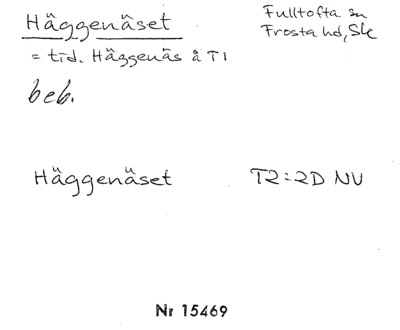 Häggenäset
Fulltofta sn
Frosta hd, Sk
= tid. Häggenäs å T1
beb.
Häggenäset T2=2D NV
Nr 15469